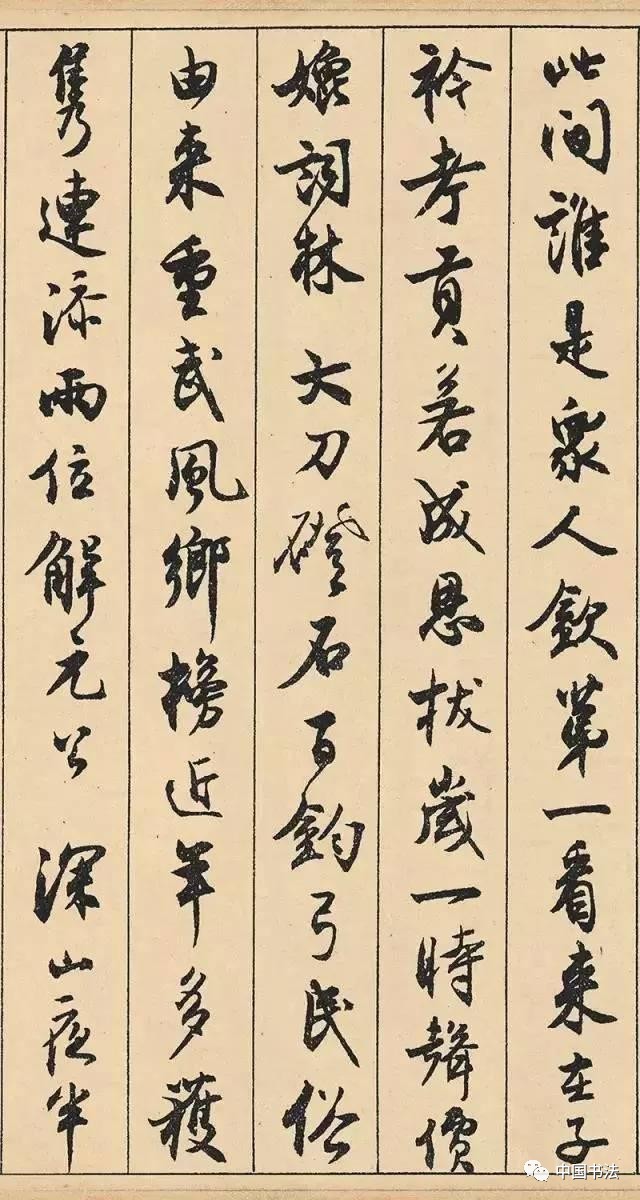 此间誰是衆人欽第一看来在子
衿考貢若成恩拔歲一時聲價
嬓詞林 大刀磴石百鈞弓民俗
由来重武風鄉榜近年多穫
雋連添兩位解元公 深山夜半
中国书法